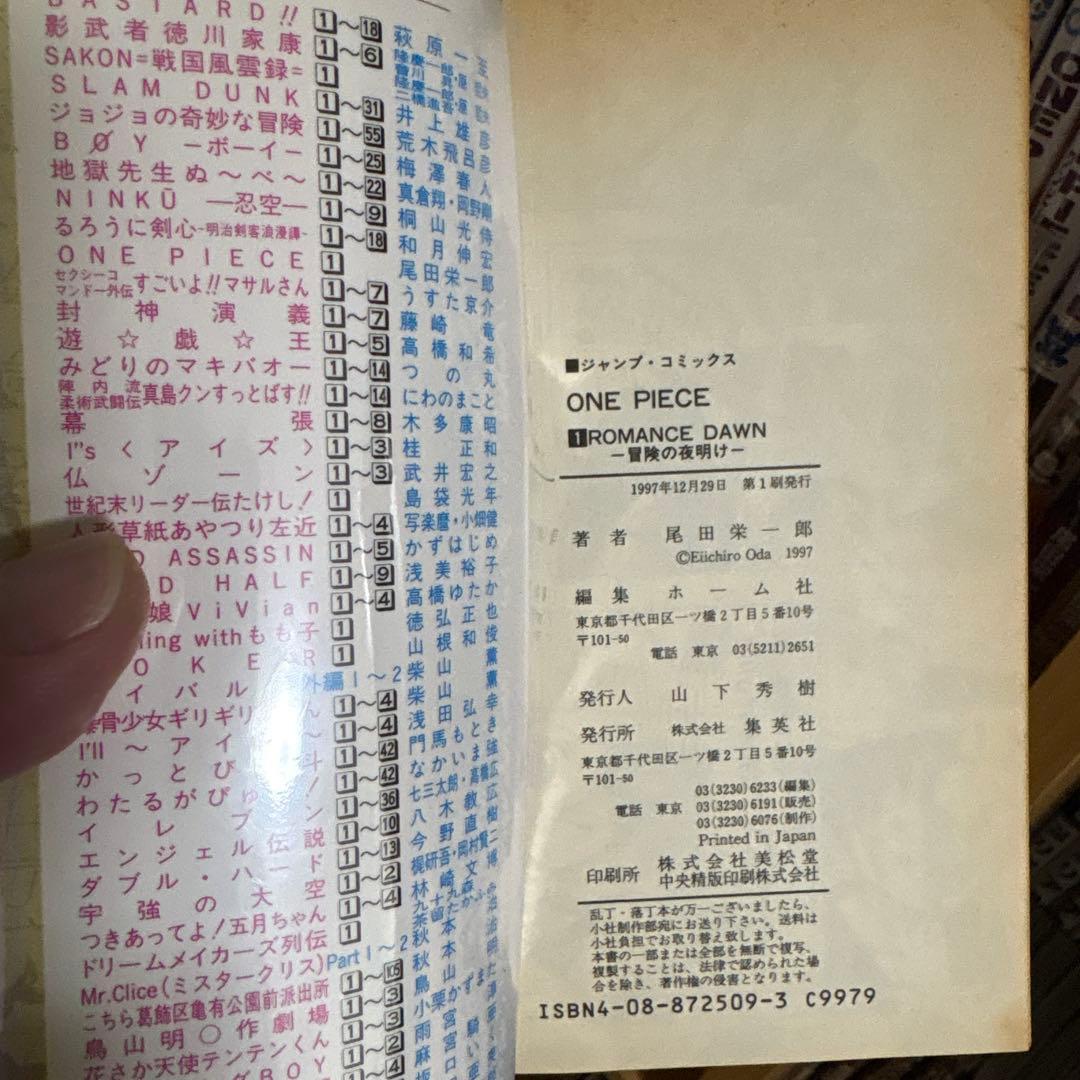 BASTARD!! 1〜18 萩原一至
影武者徳川家康 1〜6
SAKON=戦国風雲録= 1
SLAM DUNK 1〜31 井上雄彦
ジョジョの奇妙な冒険 1〜55 荒木飛呂彦
BØY －ボーイ－ 1〜25 梅澤春人
地獄先生ぬ〜べ〜 1〜22 真倉翔・岡野剛
NINKŪ ―忍空― 1〜9 桐山光侍
るろうに剣心－明治剣客浪漫譚－ 1〜18 和月伸宏
ONE PIECE 1 尾田栄一郎
セクシーコマンドー外伝 すごいよ!!マサルさん 1〜7 うすた京介
封神演義 1〜7 藤崎竜
遊☆戯☆王 1〜5 高橋和希
みどりのマキバオー 1〜14 つの丸
陣内流柔術武闘伝 真島クンすっとばす!! 1〜14 にわのまこと
幕張 1〜8 木多康昭
I"s〈アイズ〉 1〜3 桂正和
仏ゾーン 1〜3 武井宏之
世紀末リーダー伝たけし! 1 島袋光年
人形草紙あやつり左近 1〜4 写楽麿・小畑健
ASSASSIN 1〜5 かずはじめ
D HALF 1〜9 浅美裕子
娘ViVian 1〜4 高橋ゆたか
ing withもも子 1 徳弘正也
OKER 1 山根和俊
イバル 外編1〜2 柴山薫
骨少女ギリギリ 1〜4 柴山薫
I'll 〜アイ 1〜4 浅田弘幸
かっとび 斗 1〜42 門馬もとき
わたるがぴゅ ! 1〜42 なかいま強
イレブン 1〜36 七三太朗・高橋広
エンジェル伝説 1〜10 八木教広
ダブル・ハード 1〜13 今野直樹
宇強の大空 1〜2 梶研吾・岡村賢二
つきあってよ!五月ちゃん 1〜4 林崎文博
ドリームメイカーズ列伝 1
Mr.Clice(ミスタークリス) Part 1〜2 秋本治
こちら葛飾区亀有公園前派出所 1〜105 秋本治
鳥山明○作劇場 1〜3 鳥山明
花さか天使テンテンくん 1〜3 小栗かずまた
BOY 1〜2
1〜4
■ジャンプ・コミックス
ONE PIECE
1 ROMANCE DAWN
－冒険の夜明け－
1997年12月29日 第1刷発行
著者 尾田栄一郎
©Eiichiro Oda 1997
編集 ホーム社
東京都千代田区一ツ橋2丁目5番10号
〒101-50
電話 東京 03(5211)2651
発行人 山下秀樹
発行所 株式会社 集英社
東京都千代田区一ツ橋2丁目5番10号
〒101-50
03(3230)6233(編集)
電話 東京 03(3230)6191(販売)
03(3230)6076(制作)
Printed in Japan
印刷所 株式会社美松堂
中央精版印刷株式会社
乱丁・落丁本が万一ございましたら、
小社制作部宛にお送り下さい。送料は
小社負担でお取り替え致します。
本書の一部または全部を無断で複写、
複製することは、法律で認められた場
合を除き、著作権の侵害となります。
ISBN4-08-872509-3 C9979